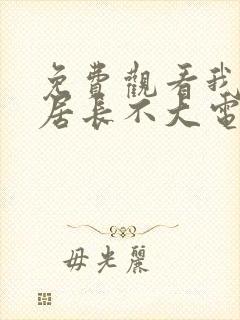 免費觀看我
居長不大電
毋光麗